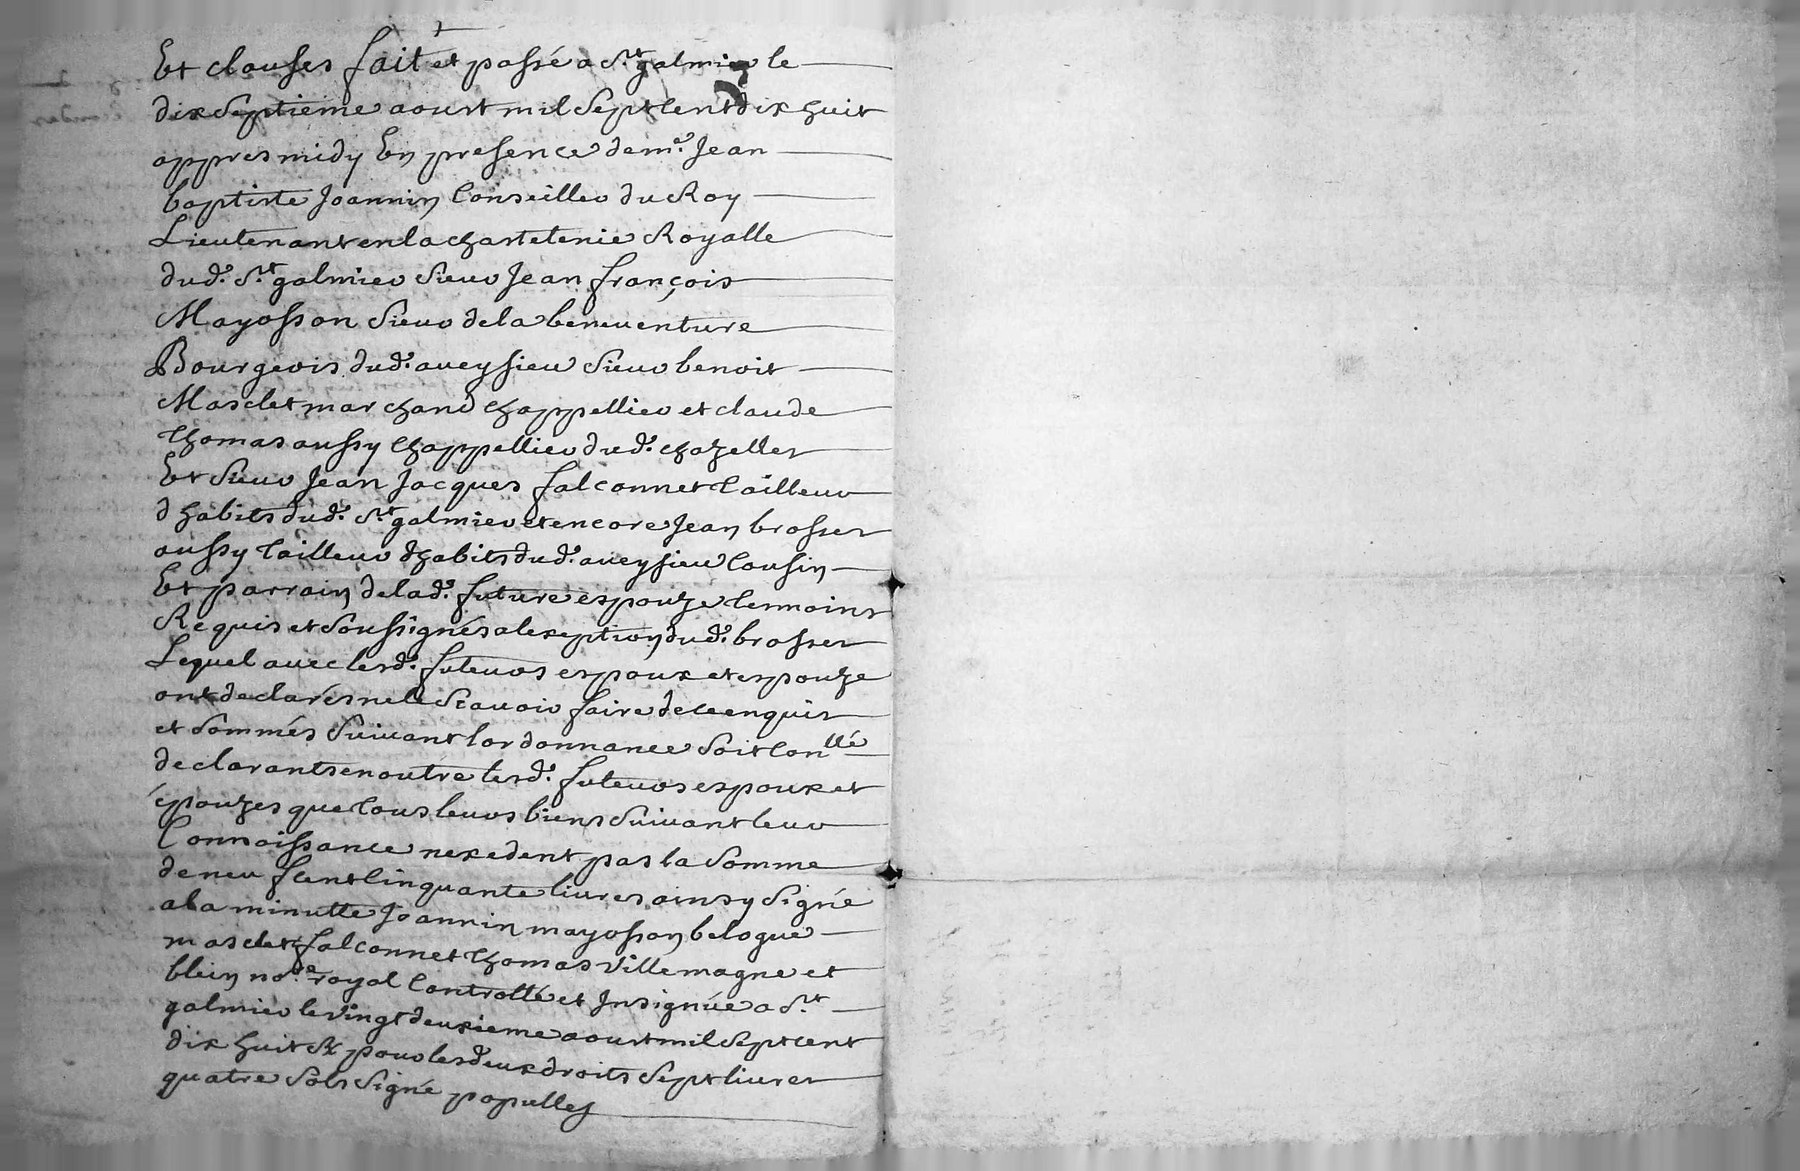 Et clauses fait et passé a St galmier le
dix septieme aoust mil sept cent dix huit
appres midy En presence de me. Jean
baptiste Joannin Conseiller du Roy
Lieutenant en la chastelenie Royalle
dud. St galmier Sieur Jean françois
Mayosson Sieur de la beneuenture
Bourgeois dud. aueysieu Sieur benoit
Masclet marchand chappellier et claude
thomas aussy chappellier dud. chazelles
Et Sieur Jean Jacques falconnet tailleur
d habits dud. St galmier et encore Jean brosses
aussy tailleur d habits dud. aueysieu Cousin
Et parrain de lad. future espouze temoins
Requis et Soussignés a lexeption dud. brosses
Lequel auec lesd. futeurs espoux et espouze
ont declarés ne le Scauoir faire de ce enquis
et Sommés Suiuant lordonnance Soit Conllé
declarants en outre lesd. futeurs espoux et
épouzes que tous leurs biens Suiuant leur
Connaissance nexedent pas la Somme
de neuf Cent Cinquante liures ainsy Signé
a la minutte Joannin mayosson belogue
masclet falconnet thomas Villemagne et
blein nore. royal Controllé et Insignué a St
galmier le vingt deuxieme aoust mil Sept cent
dix huit R pour les deux droits Sept liures
quatre Sols Signé populles